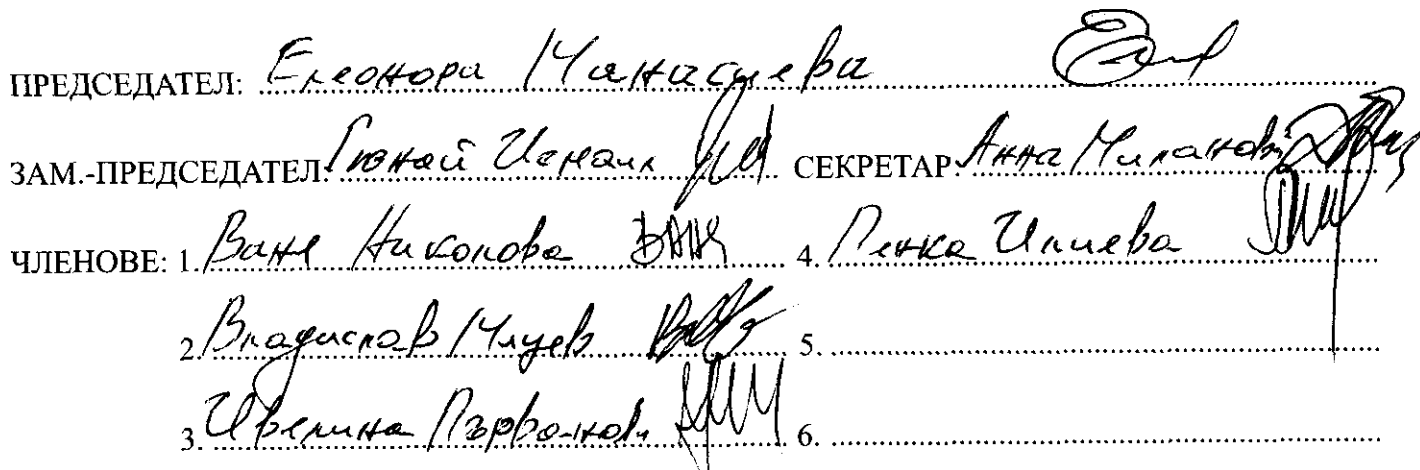 ПРЕДСЕДАТЕЛ: Елеонора Манасиева
ЗАМ.-ПРЕДСЕДАТЕЛ: Гюнай Исмаил СЕКРЕТАР: Анна Миланова
ЧЛЕНОВЕ: 1. Ваня Николова 4. Пенка Илиева
2. Владислав 5.
3. Ивелина Първанова 6.